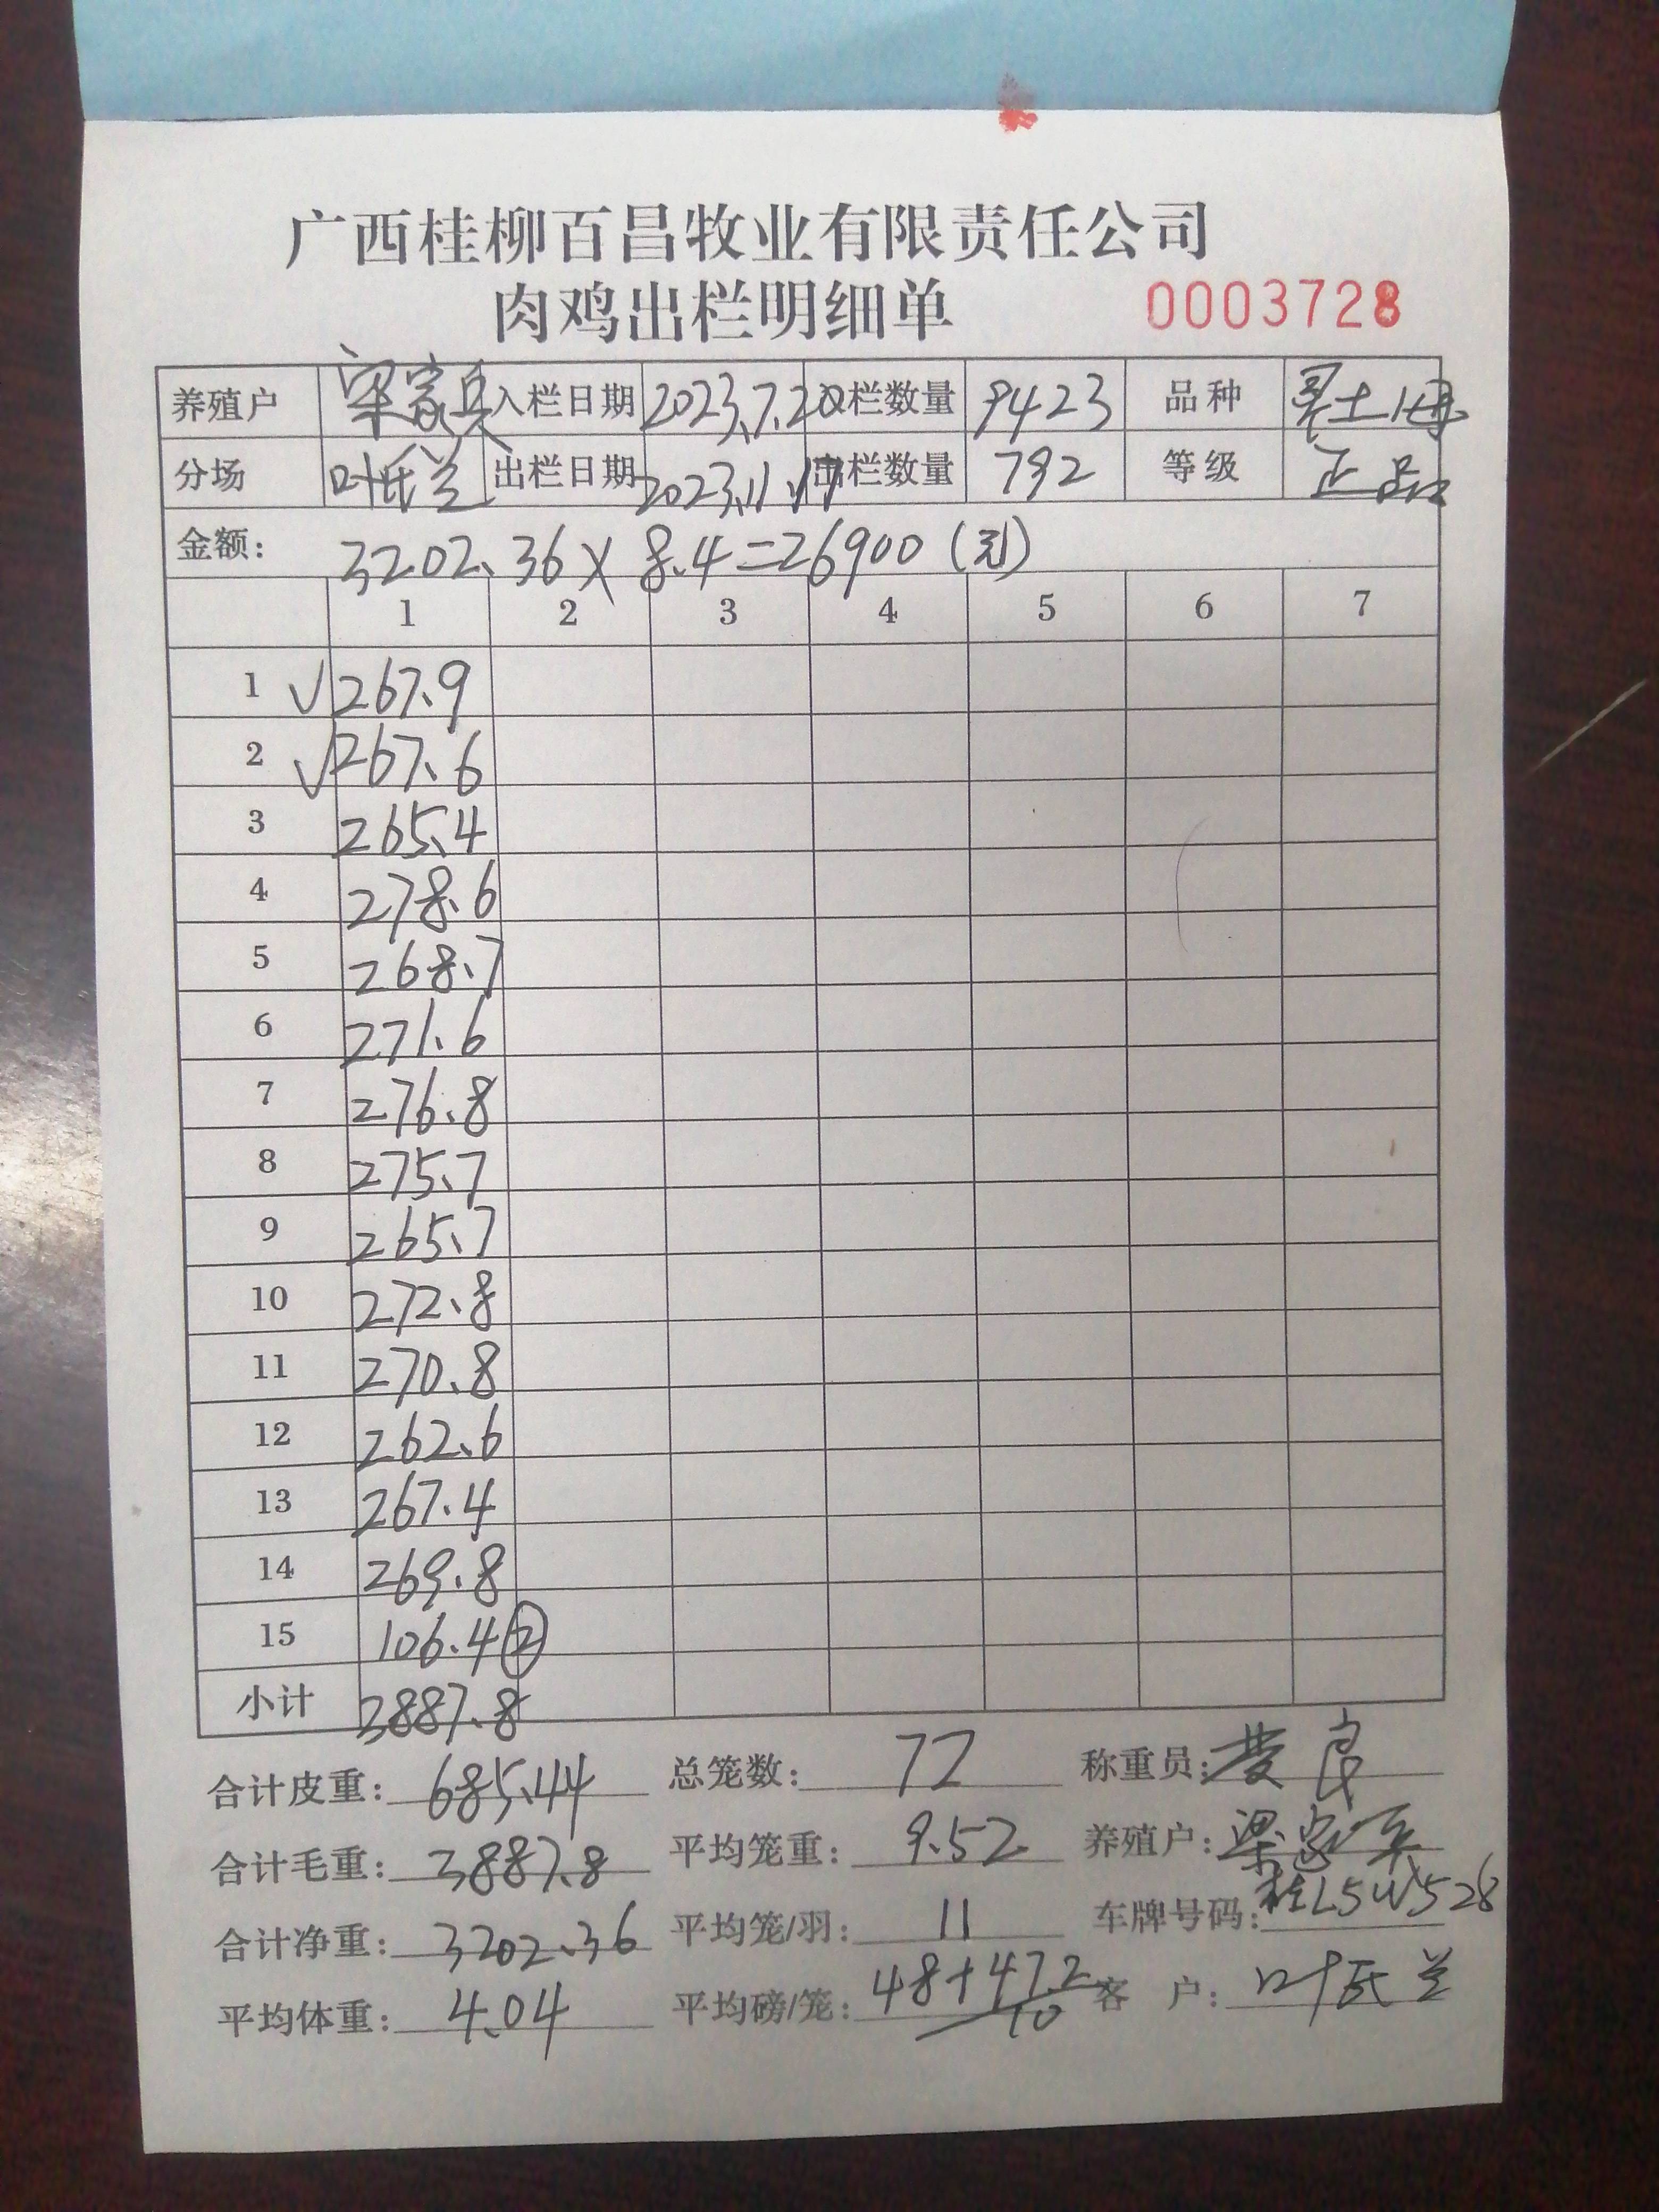 广西桂柳百昌牧业有限责任公司
肉鸡出栏明细单 0003728
养殖户 梁家兵 入栏日期 2023.7.20 入栏数量 9423 品种 土
分场 叶氏兰 出栏日期 2023.11.17 出栏数量 792 等级 正品
金额: 3202.36×8.4=26900(元)
1 2 3 4 5 6 7
1 √267.9
2 √267.6
3 265.4
4 278.6
5 268.7
6 271.6
7 276.8
8 275.7
9 265.7
10 272.8
11 270.8
12 262.6
13 267.4
14 269.8
15 106.4②
小计 3887.8
合计皮重: 685.44 总笼数: 72 称重员: 良
合计毛重: 3887.8 平均笼重: 9.52 养殖户: 梁家兵
合计净重: 3202.36 平均笼/羽: 11 车牌号码: 桂L5W528
平均体重: 4.04 平均磅/笼: 48+47.2/10 客 户: 叶氏兰